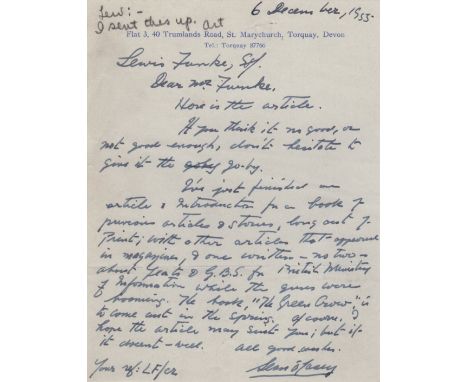 Lew:-
I sent this up. Art
6 December, 1955.
Flat 3, 40 Trumlands Road, St. Marychurch, Torquay, Devon
Tel.: Torquay 87766
Lewis Funke, Esq.
Dear Mr Funke.
Here is the article.
If you think it no good, or
not good enough, don't hesitate to
give it the go-by.
I've just finished an
article & Introduction for a book of
previous articles & stories, long out of
Print; with other articles that appeared
in magazines, & one written – no two –
about Yeats & G.B.S. for British Ministry
of Information while the guns were
booming. The book, "The Green Crow", is
to come out in the Spring. Of course, I
hope the article may suit you; but if
it doesnt – well. All good wishes.
Your ref: LF/cr
Sean O'Casey